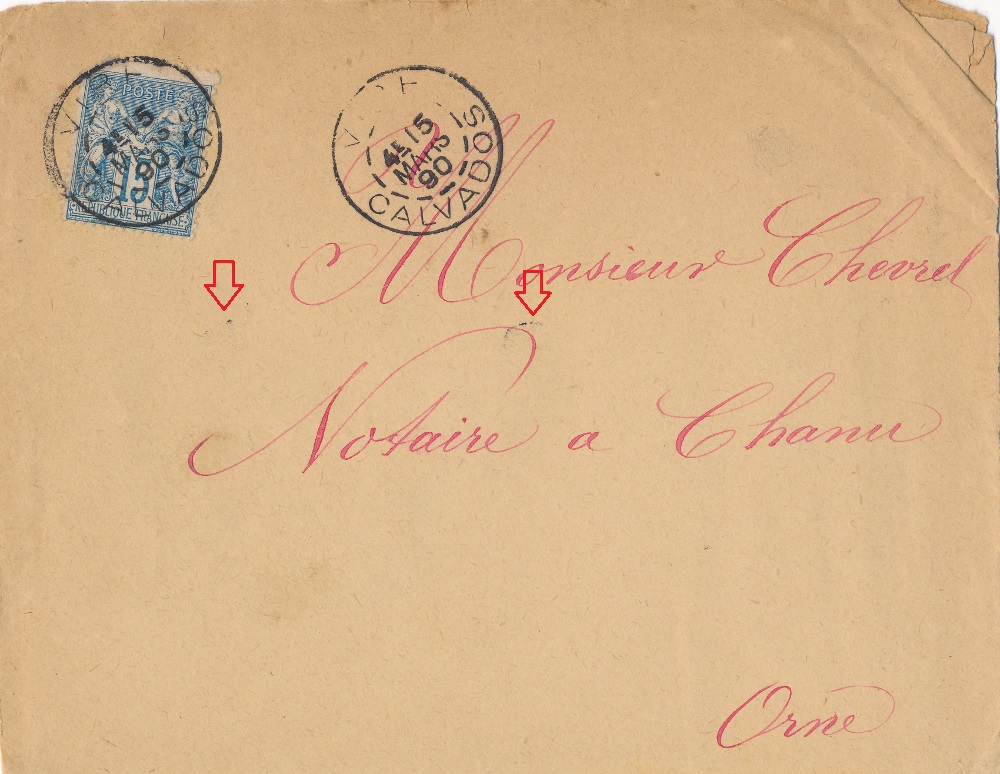 POSTES
15
REPUBLIQUE FRANÇAISE
VIRE
4E 15
MARS
90
CALVADOS
VIRE
4E 15
MARS
90
CALVADOS
Monsieur Chevrel
Notaire a Chanu
Orne